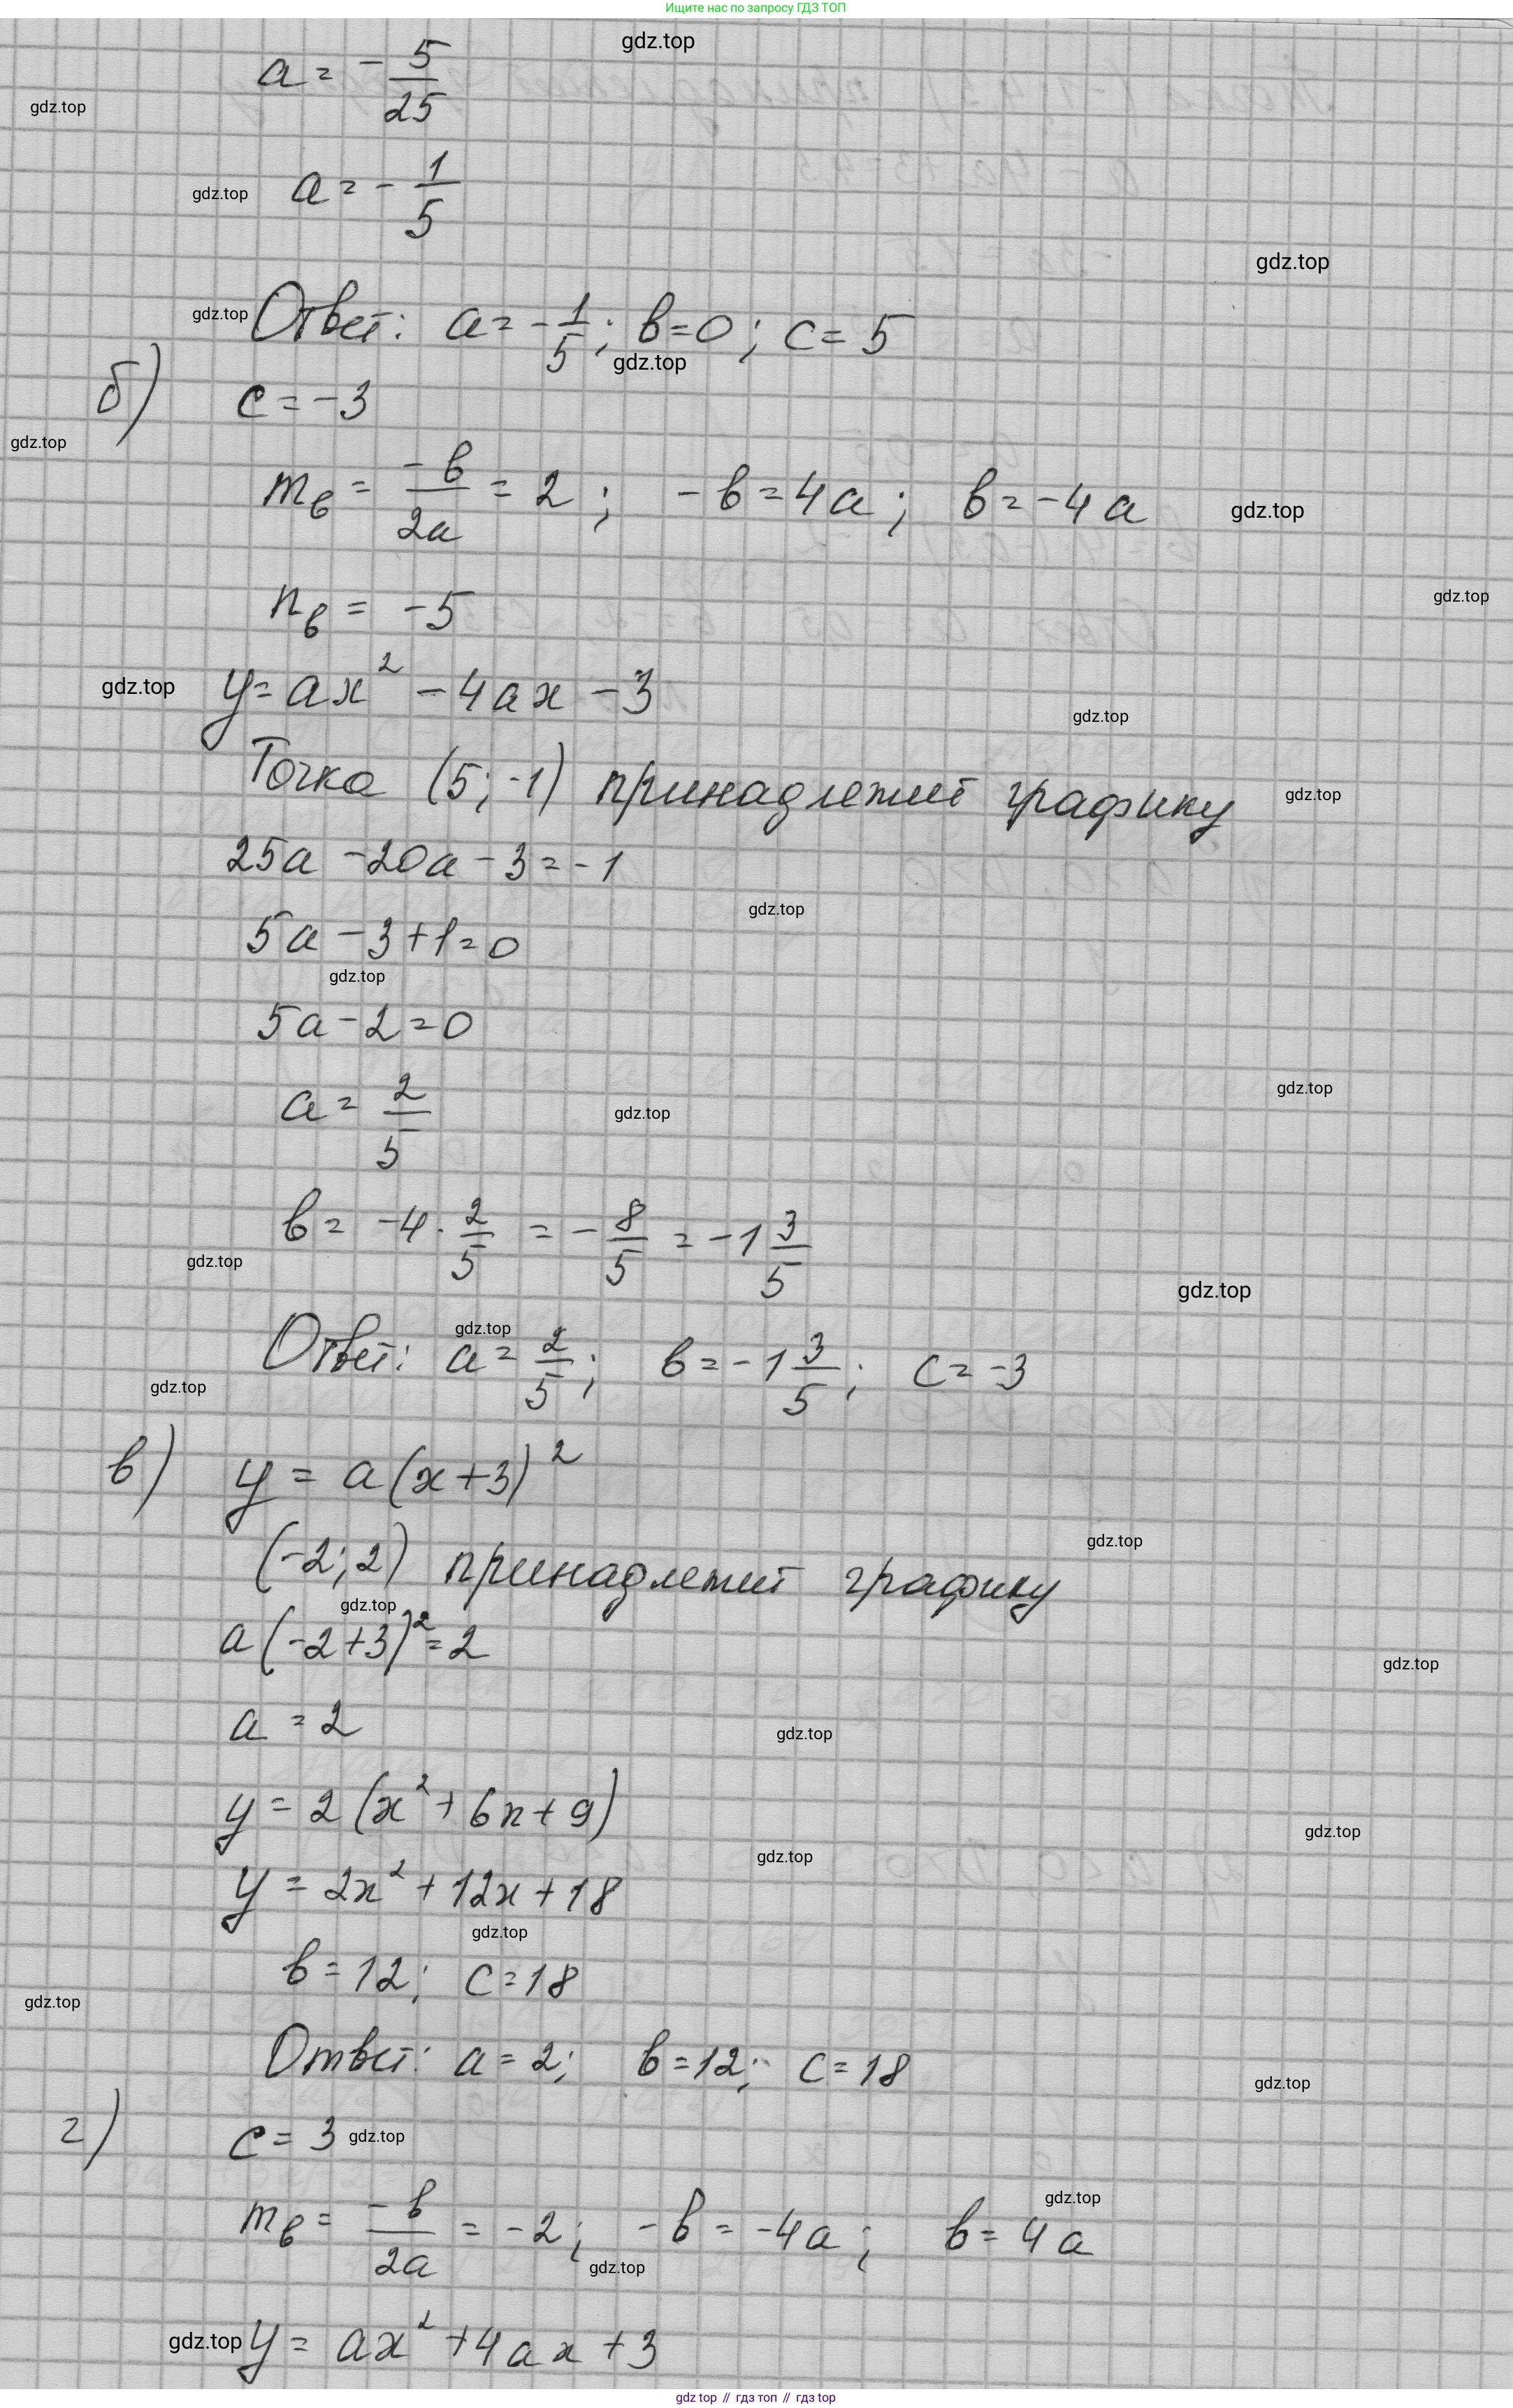 Ищите нас по запросу ГДЗ ТОП
gdz.top
a = - 5/25
gdz.top
a = - 1/5
gdz.top
gdz.top
gdz.top
Ответ: a = - 1/5; в = 0; c = 5
gdz.top
б) c = -3
gdz.top
m_в = -в/2a = 2; -в = 4a; в = -4a
gdz.top
n_в = -5
gdz.top
gdz.top
y = ax² - 4ax - 3
gdz.top
Точка (5; -1) принадлежит графику
gdz.top
25a - 20a - 3 = -1
gdz.top
5a - 3 + 1 = 0
gdz.top
5a - 2 = 0
gdz.top
a = 2/5
gdz.top
в = -4 · 2/5 = - 8/5 = -1 3/5
gdz.top
gdz.top
gdz.top
Ответ: a = 2/5; в = -1 3/5; c = -3
gdz.top
в) y = a(x+3)²
gdz.top
(-2; 2) принадлежит графику
gdz.top
a(-2+3)² = 2
gdz.top
a = 2
gdz.top
y = 2(x² + 6x + 9)
gdz.top
gdz.top
y = 2x² + 12x + 18
gdz.top
в = 12; c = 18
gdz.top
Ответ: a = 2; в = 12; c = 18
gdz.top
г) c = 3
gdz.top
gdz.top
m_в = -в/2a = -2; -в = -4a; в = 4a
gdz.top
gdz.top
y = ax² + 4ax + 3
gdz top // гдз топ // гдз top